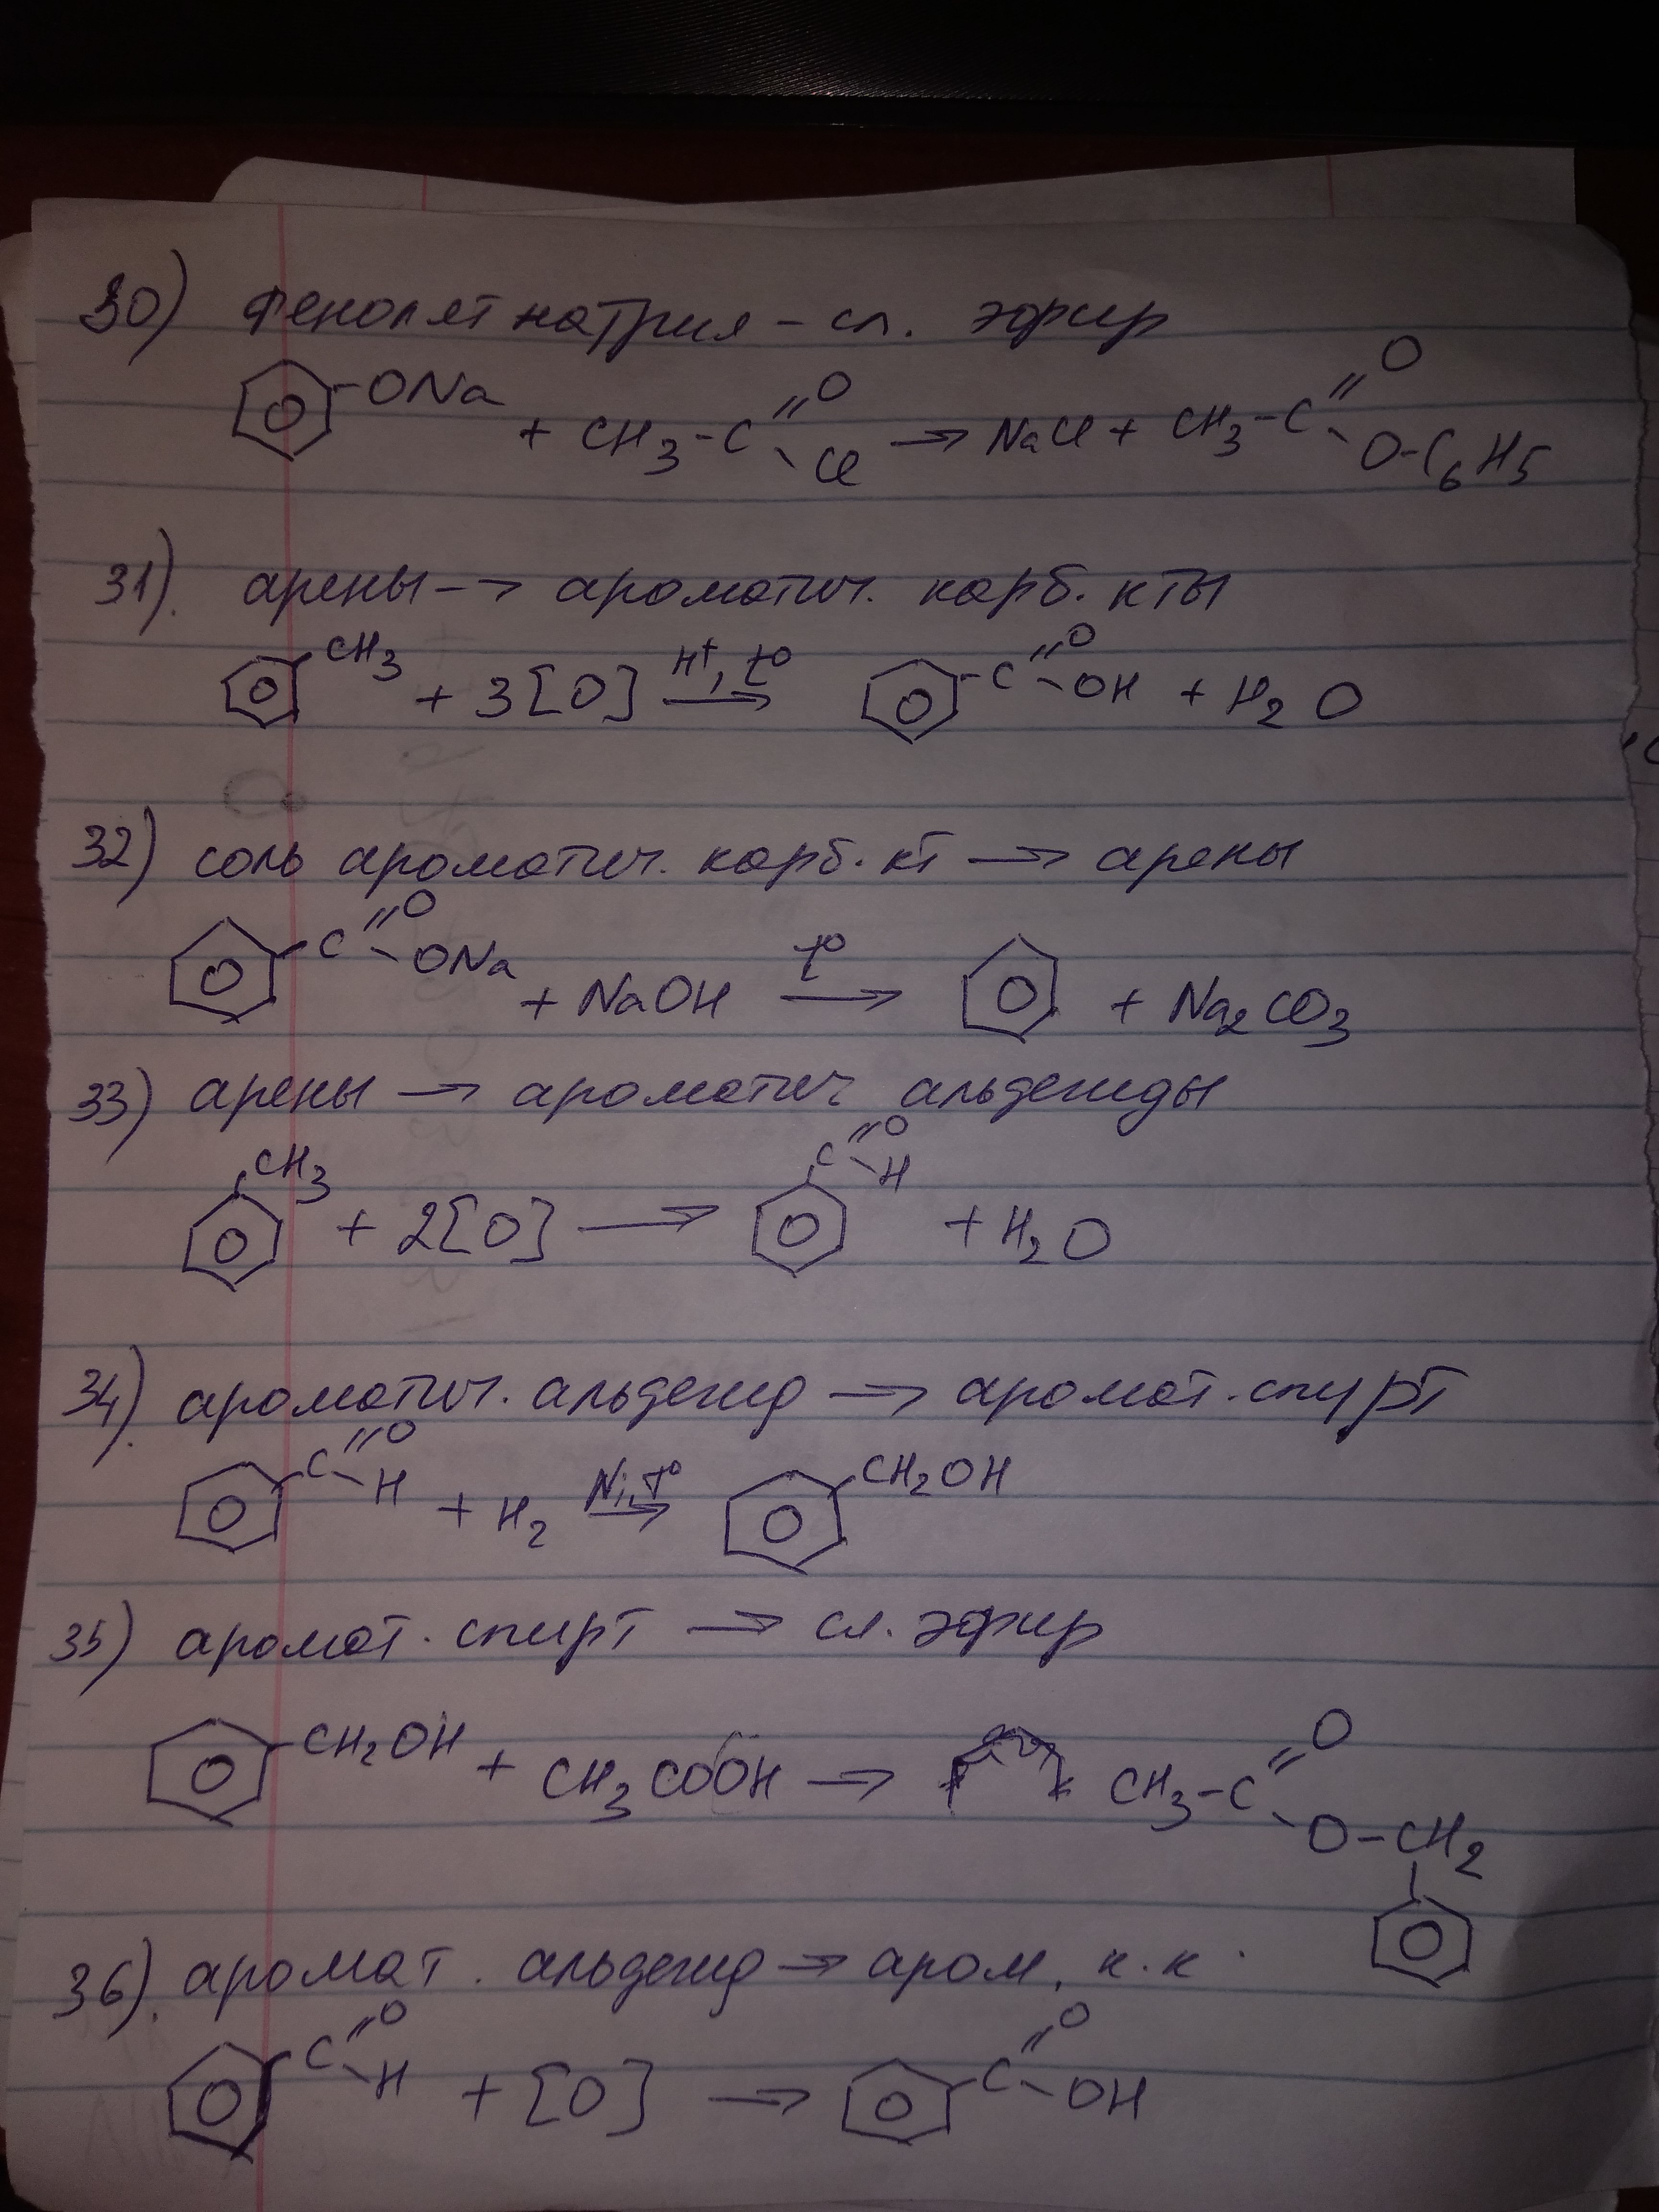 30) Фенолят натрия – сл. эфир
ONa + CH3-C=O Cl → NaCl + CH3-C=O O-C6H5
31). арены –> ароматич. карб. кты
CH3 + 3[O] H+, t° → C=O OH + H2O
32) соль ароматич. карб. кт → арены
C=O ONa + NaOH t° → + Na2CO3
33) арены → ароматич альдегиды
CH3 + 2[O] → C=O H + H2O
34). ароматич. альдегид → аромат. спирт
C=O H + H2 Ni, t° → CH2OH
35) аромат. спирт → сл. эфир
CH2OH + CH3COOH → CH3-C=O O-CH2
36). аромат. альдегид → аром. к.к.
C=O H + [O] → C=O OH